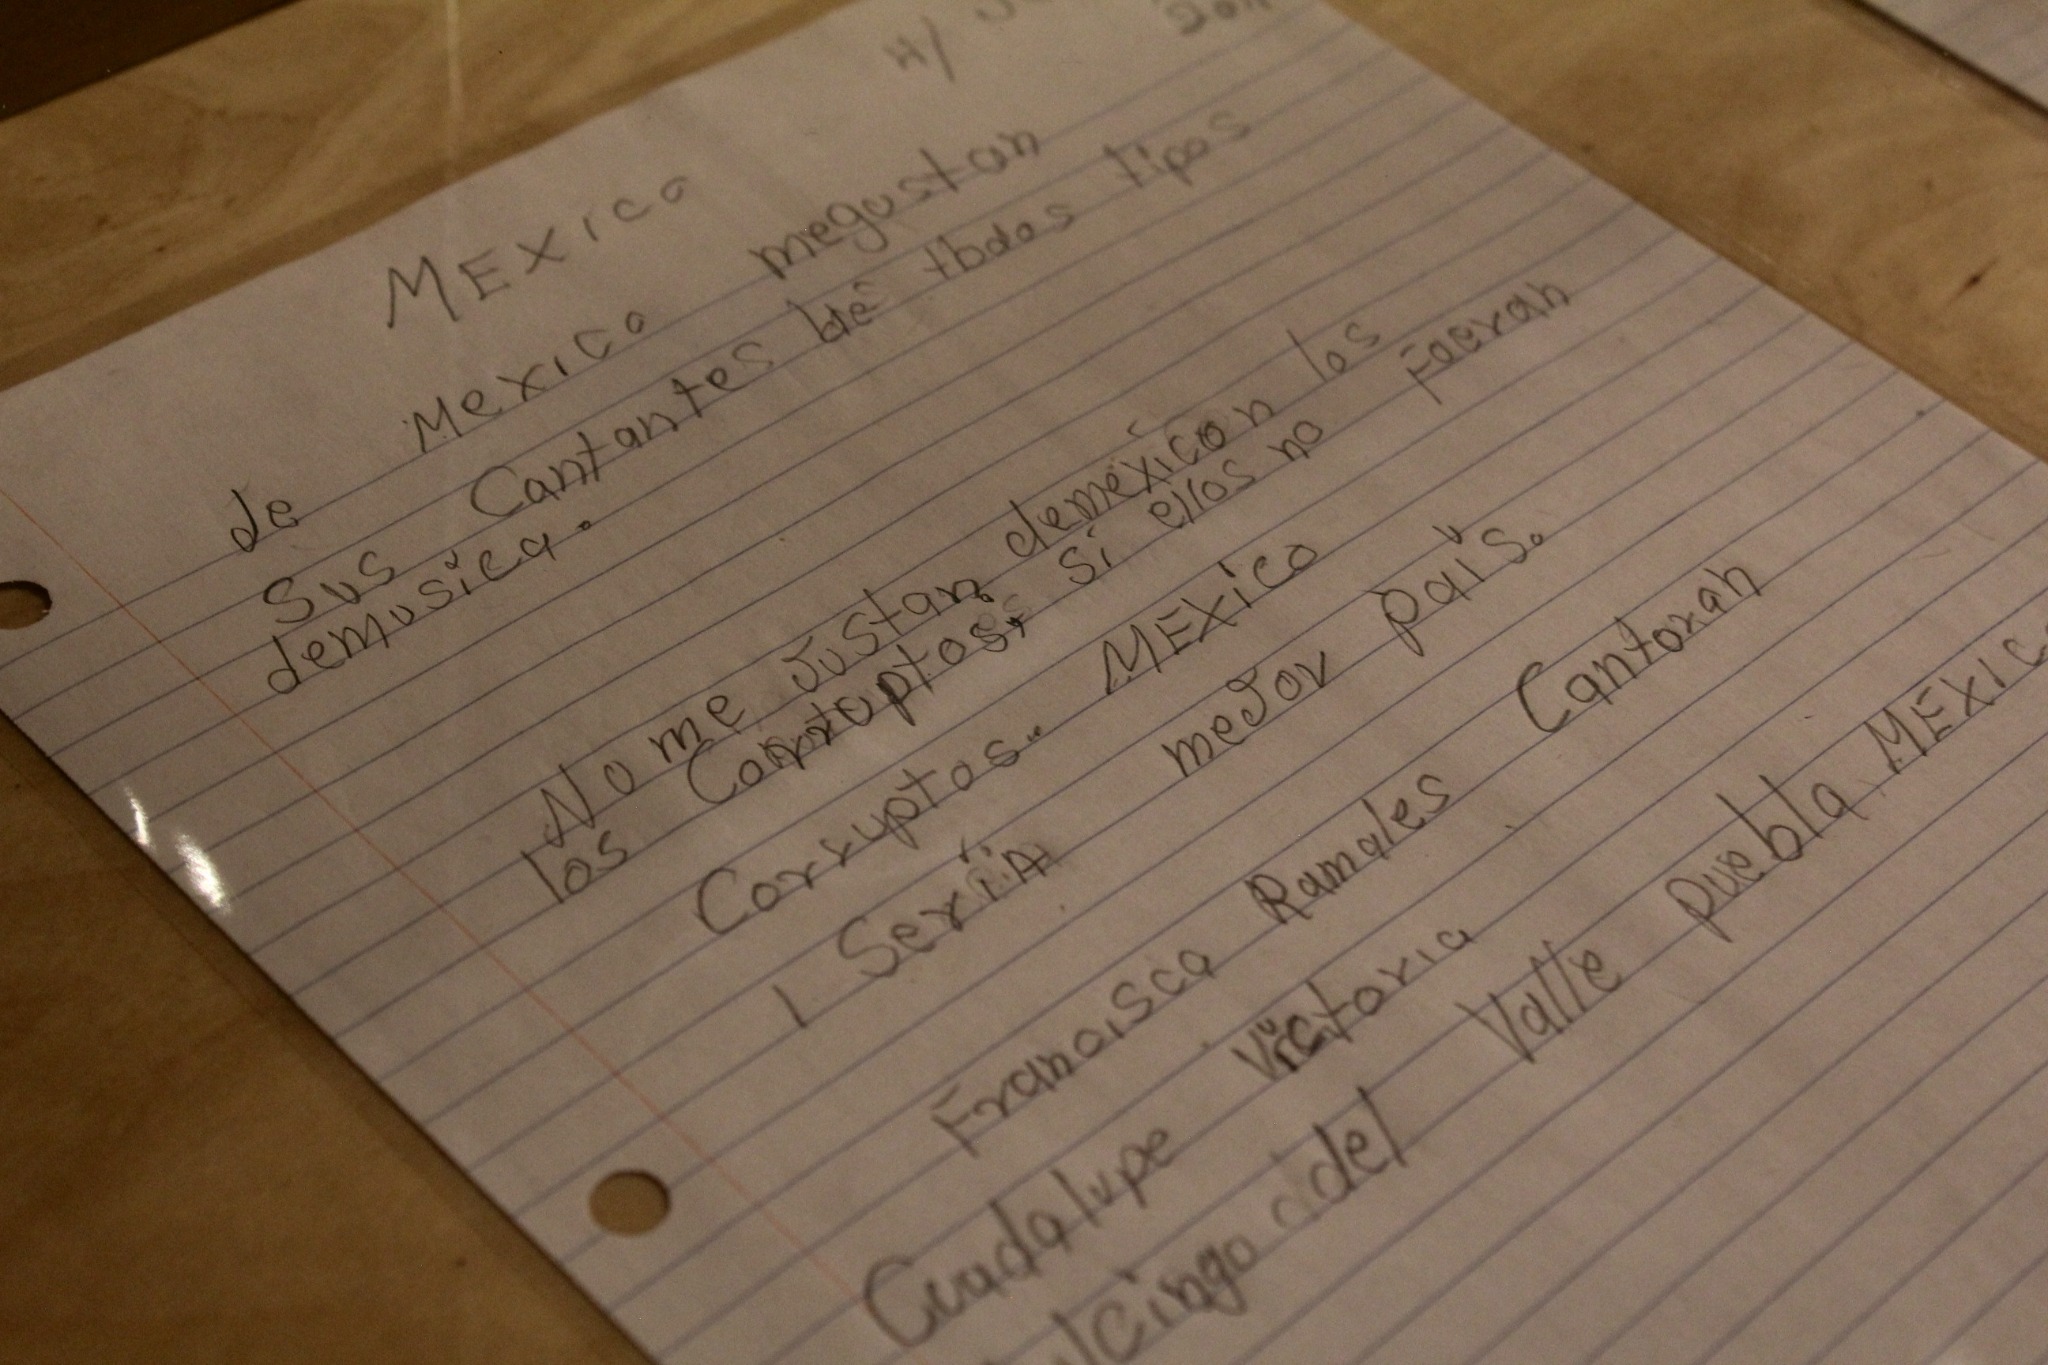 MEXICO
de Mexico megustan
Sus Cantantes de tbdos tipos
demusica.
No me Justan demexicon los
los Corruptos, si ellos no Foeran
Corruptos. MEXICO
Seria meJor país.
Francisca Ramales Cantoran
Guadalupe Victoria
lcingo del Valle puebla MEXIC